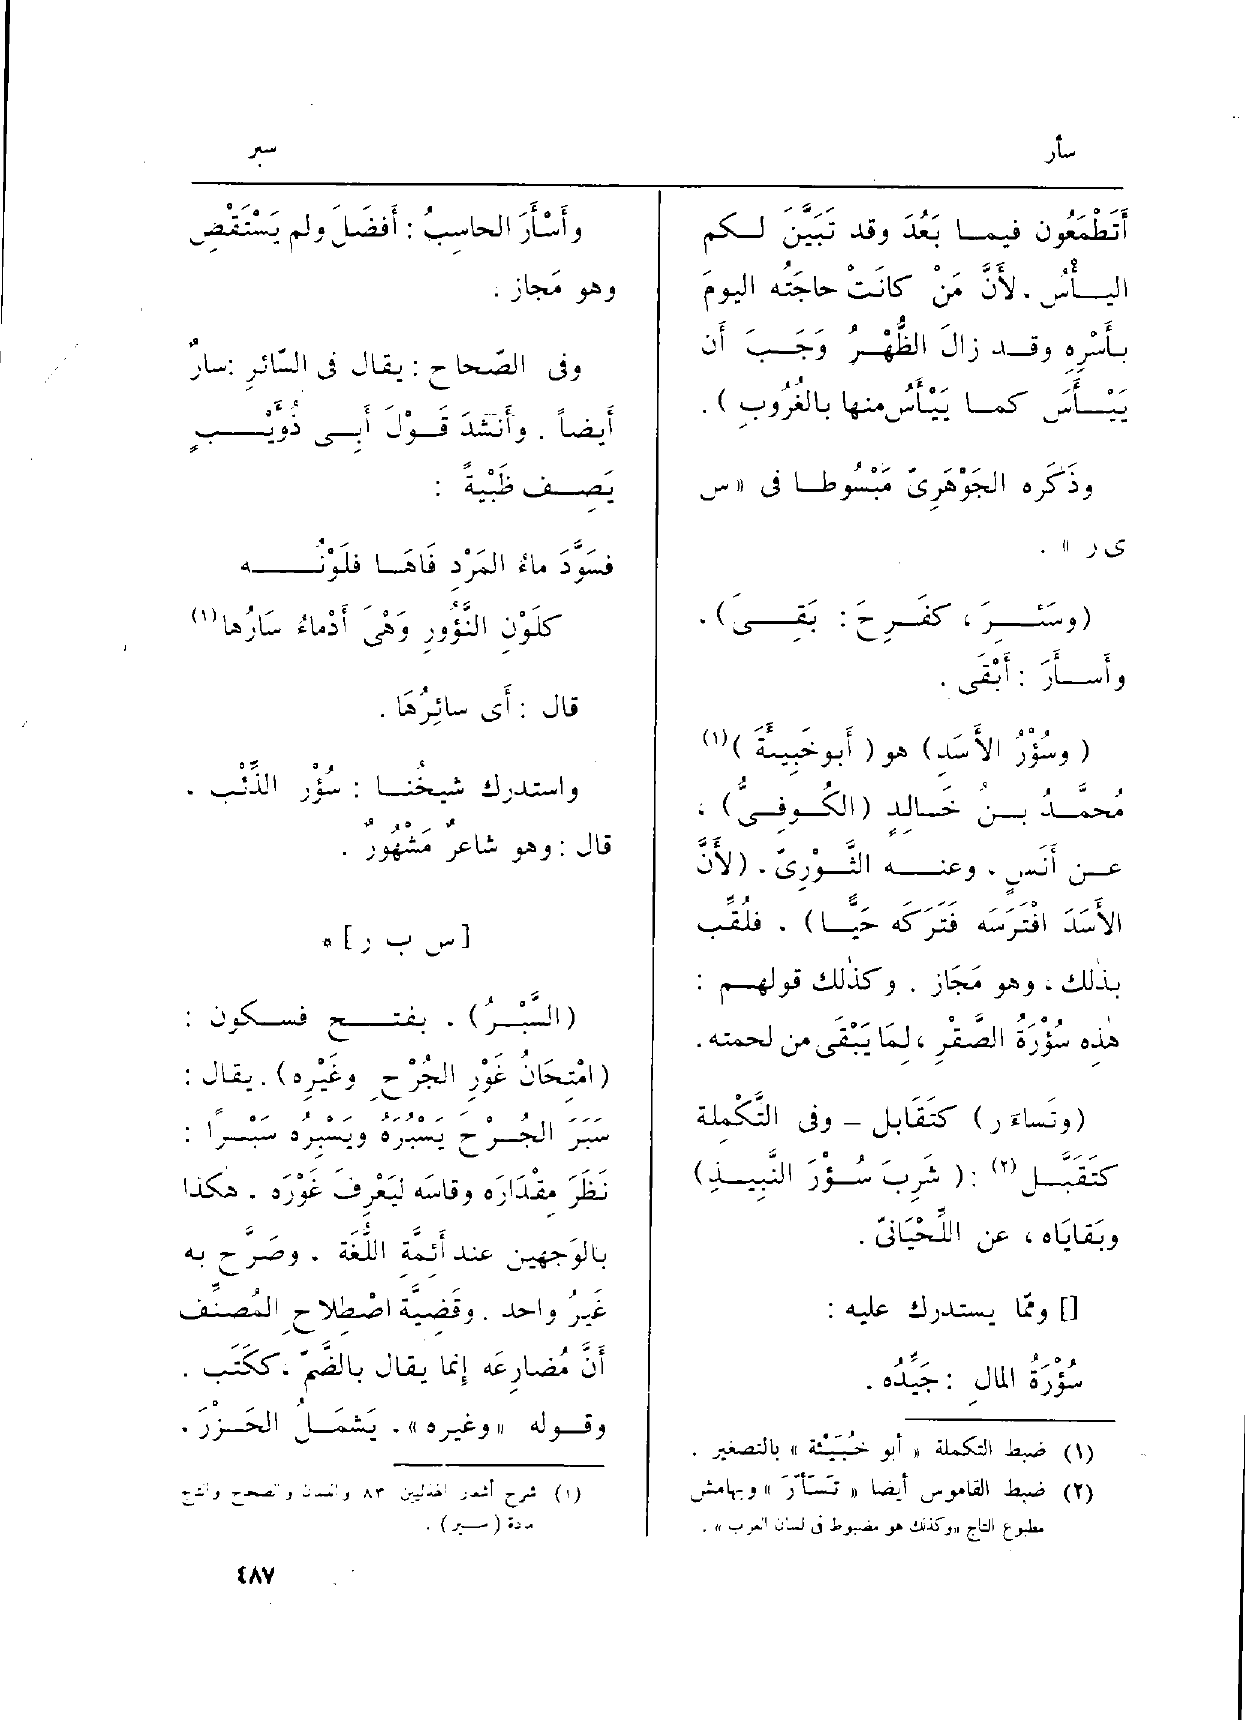 سأر
سبر
أَتَطْمَعُون فيمـا بَعْدَ وقد تَبَيَّنَ لـكم
اليـأْسُ . لأَنَّ مَنْ كانَتْ حاجَتُه اليومَ
بـأَسْرِه وقـد زالَ الظُّهْـرُ وَجَـبَ أن
يَيْـأَسَ كمـا يَيْأَسُ منها بالغُرُوبِ ) .
وذَكَره الجَوْهَرِىّ مَبْسُوطـا فى « س
ى ر » .
(وسَئِـرَ ، كفَـرِحَ : بَقِـىَ) .
وأَسـأَرَ : أَبْقَى .
( وسُؤْرُ الأَسَدِ) هو ( أَبو خَبِيئَةَ )(١)
مُحمَّـدُ بـنُ خَـالِدٍ (الكُـوفِـىُّ) ،
عـن أَنَسٍ ، وعنـه الثَّـوْرِىّ . (لأَنَّ
الأَسَدَ افْتَرَسَه فَتَرَكَه حَيًّـا) . فلُقِّب
بذٰلك ، وهو مَجَاز . وكذٰلك قولهـم :
هٰذِه سُؤْرَةُ الصَّقْرِ ، لِمَا يَبْقَى من لحمته .
(وتَساءَر) كتَقَابل – وفى التَّكْمِلة
كتَقَبَّـل(٢) : ( شَرِبَ سُـؤْرَ النَّبِيـذِ)
وبَقايَاه ، عن اللِّحْيَانىّ .
[] وممّا يستدرك عليه :
سُؤْرَةُ المَالِ : جَيِّدُه .
(١) ضبط التكملة « أبو خُبَيْئَة » بالتصغير .
(٢) ضبط القاموس أيضا « تَسَأَّرَ » وبهامش
مطبوع التاج «وكذلك هو مضبوط فى لسان العرب » .
وأَسْأَرَ الحاسِبُ : أَفضَلَ ولم يَسْتَقْصِ
وهو مَجاز .
وفى الصّحاح : يقال فى السّائرِ : سارٌ
أَيضاً . وأَنشَدَ قَـوْلَ أَبِـى ذُؤَيْـبٍ
يَصِـف ظَبْيَةً :
فسَوَّدَ ماءُ المَرْدِ فَاهَـا فلَوْنُـه
كلَوْنِ النَّؤُورِ وَهْىَ أَدْماءُ سَارُها(١)
قال : أَى سائِرُهَا .
واستدرك شيخُنـا : سُؤْر الذِّئْب .
قال : وهو شاعرٌ مَشْهُورٌ .
[ س ب ر ] *
(السَّبْـرُ) . بفتـح فسـكون :
(امْتِحَانُ غَوْرِ الجُرْحِ وغَيْرِه) . يقال :
سَبَرَ الجُـرْحَ يَسْبُرُه ويَسْبِرُه سَبْـرًا :
نَظَرَ مِقْدَارَه وقاسَه ليَعْرِفَ غَوْرَه . هكذا
بالوَجهين عند أَئمَّةِ اللُّغَة . وصَرَّح به
غَيرُ واحد . وقَضِيَّة اصْطِلاحِ المُصنِّف
أَنَّ مُضارِعَه إِنما يقال بالضَّمّ ، ككَتَب .
وقـوله « وغيره » . يَشْمَـلُ الحَـزْرَ .
(١) شرح أشعار الهذليين ٨٣ واللسان والصحاح والتاج
مادة ( سير ) .
٤٨٧